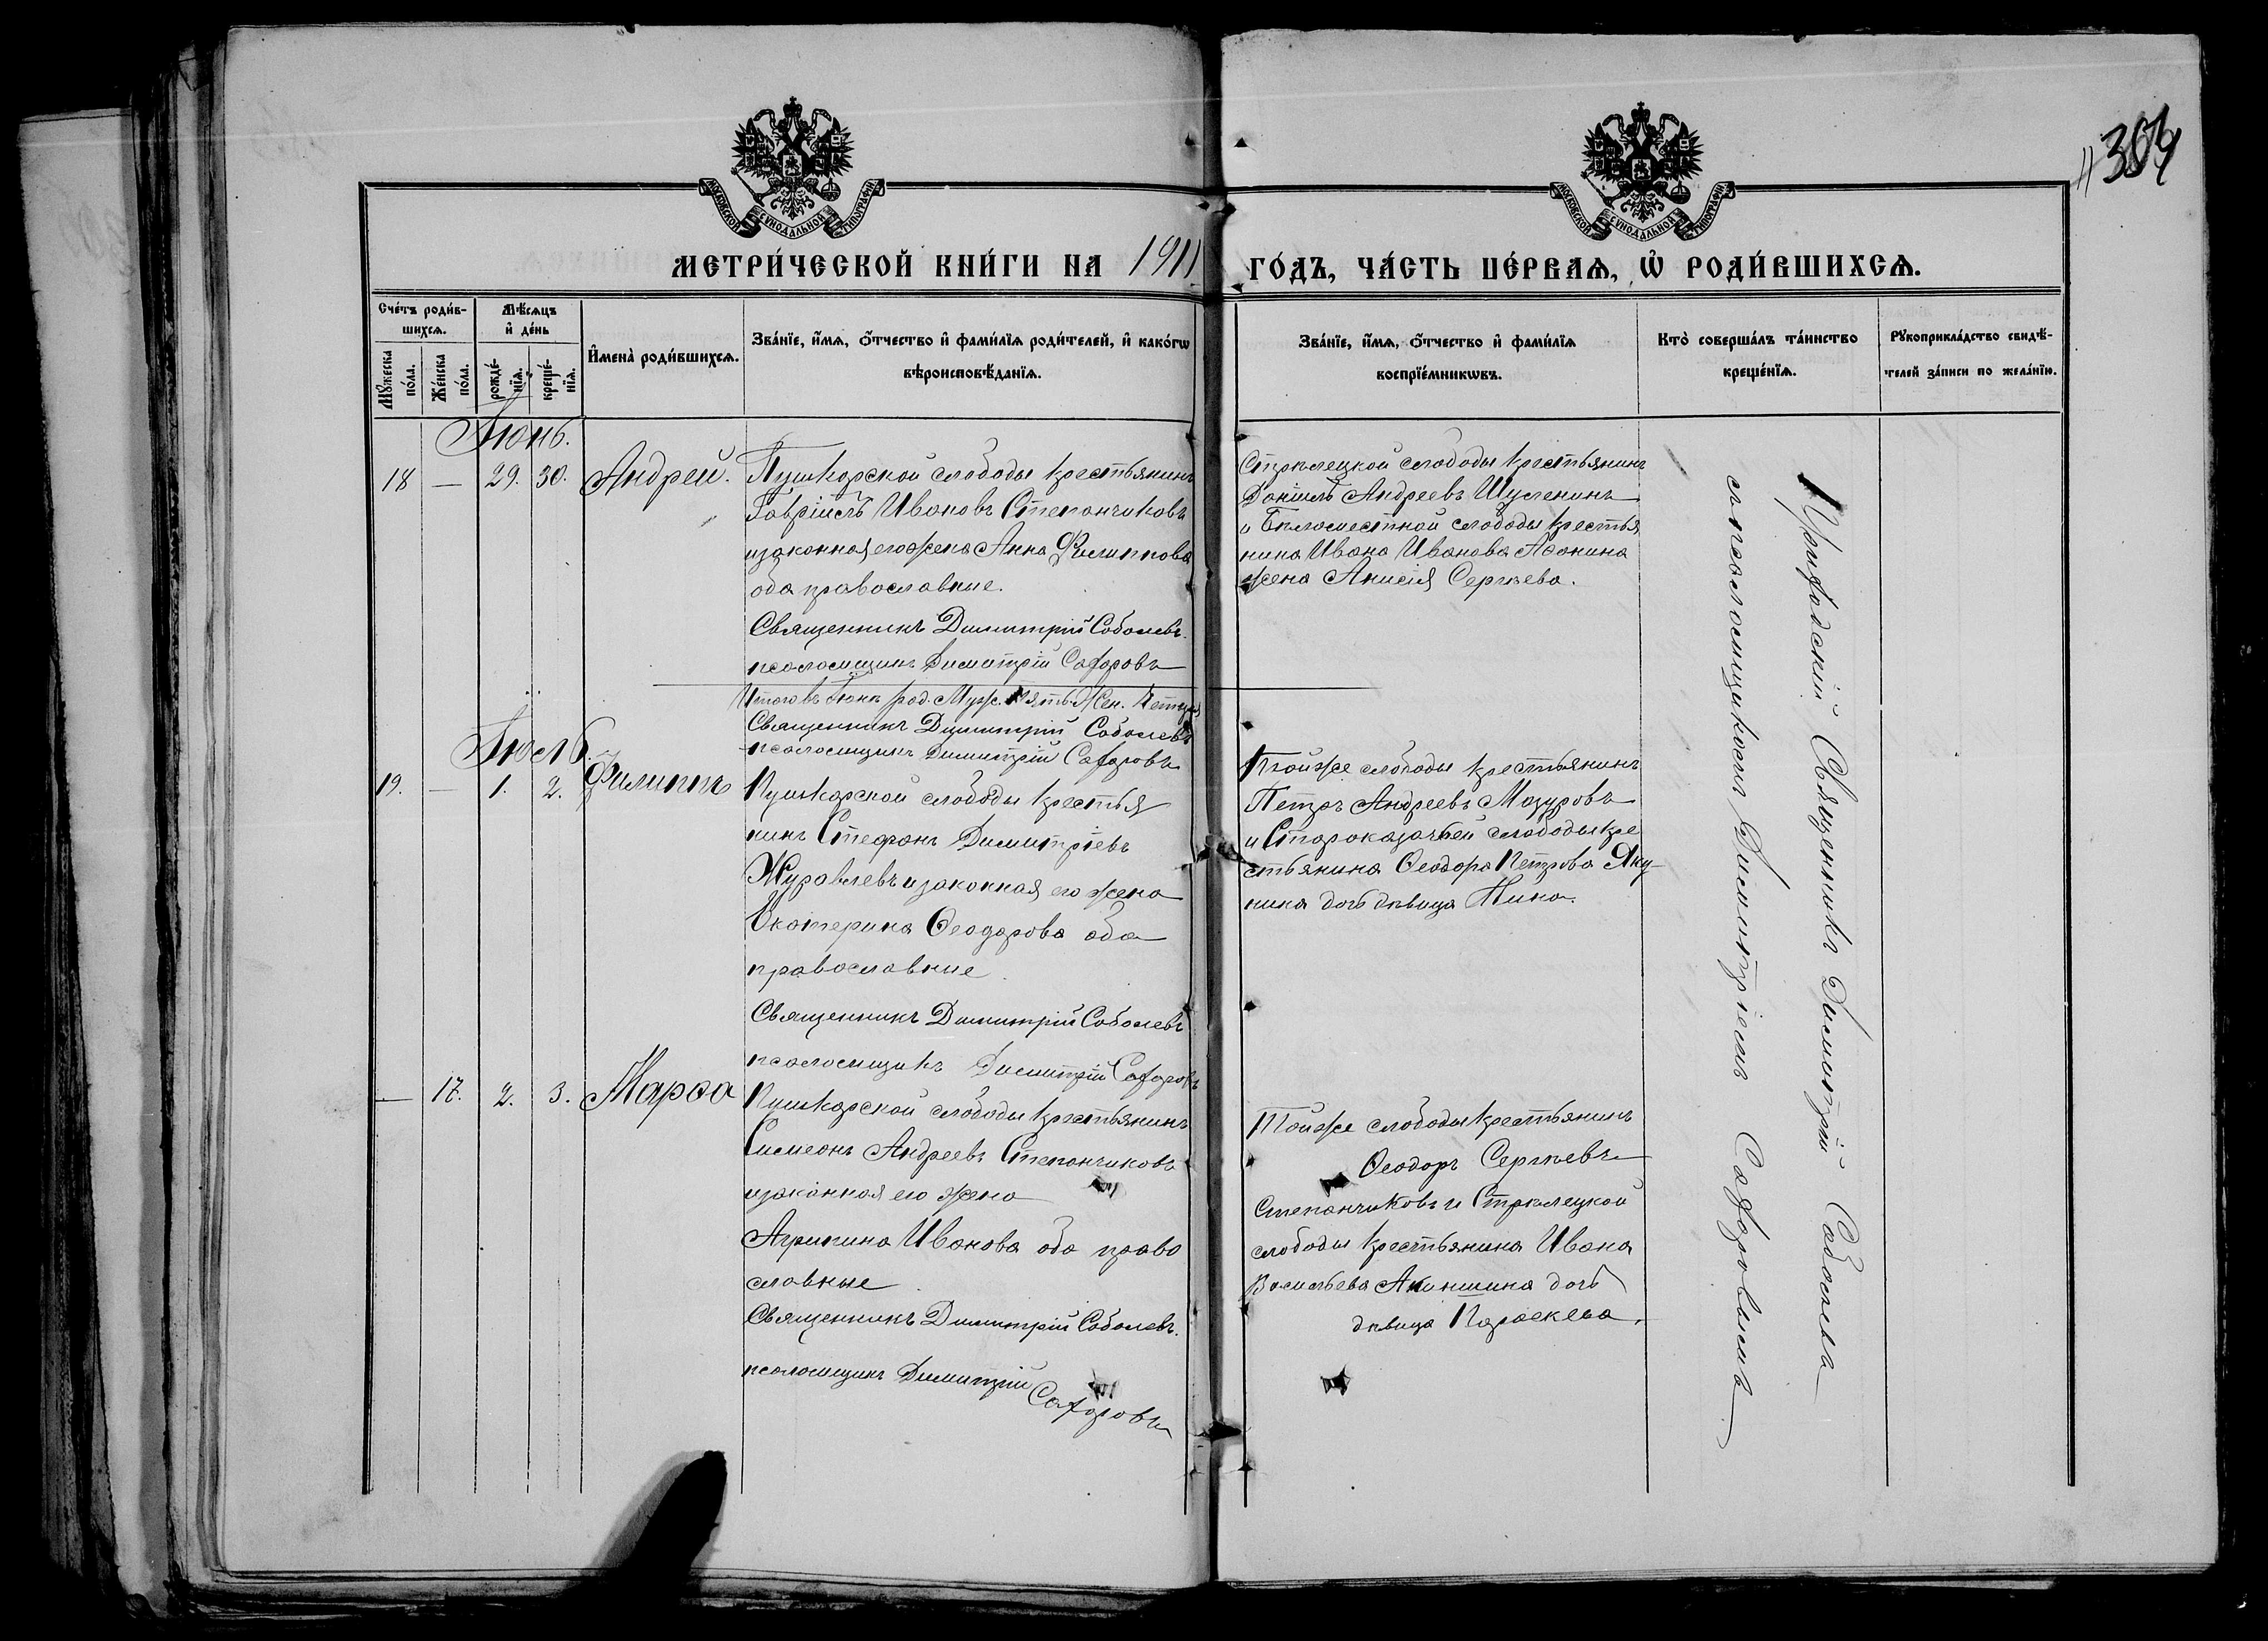 304
МОСКОВСКОЙ СѴНОДАЛЬНОЙ ТИПОГРАФІИ
МОСКОВСКОЙ СѴНОДАЛЬНОЙ ТИПОГРАФІИ
МЕТРИ́ЧЕСКОЙ КНИ́ГИ НА 1911 ГО́ДЪ, ЧА́СТЬ ПЕ́РВАѦ, Ѡ҆ РОДИ́ВШИХСѦ.
Сче́тъ роди́в-
шихсѧ.
Мꙋжеска по́ла.
Же́нска по́ла.
Мѣ́сѧцъ
и҆ де́нь
рожде́-
нїѧ.
креще́-
нїѧ.
И҆мена̀ роди́вшихсѧ.
Зва́нїе, и҆́мѧ, ѻ҆́тчество и҆ фами́лїѧ роди́телей, и҆ како́гѡ
вѣроисповѣ́данїѧ.
Зва́нїе, и҆́мѧ, ѻ҆́тчество и҆ фами́лїѧ
воспрїе́мникѡвъ.
Кто̀ соверша́лъ та́инство
креще́нїѧ.
Рꙋкоприкла́дство свидѣ́-
телей за́писи по жела́нїю.
Іюнь.
18 — 29. 30. Андрей.
Пушкарской слободы крестьянинъ
Гавріилъ Ивановъ Степанчиковъ
и законная его жена Анна Филиппова
оба православные.
Священникъ Димитрій Соболевъ.
псаломщикъ Димитрій Сафоровъ
Стрѣлецкой слободы крестьянинъ
Даніилъ Андреевъ
и Бѣломестной слободы крестья
нина Ивана Иванова
жена Анисія Сергѣева.
Итого въ Іюнѣ род. Муж. пять Жен. четыре
Священникъ Димитрій Соболевъ
псаломщикъ Димитрій Сафоровъ
Іюль
19. — 1. 2. Филиппъ
Пушкарской слободы крестья
нинъ Стефанъ Димитріевъ
Журавлевъ и законная его жена
Екатерина Ѳеодорова оба
православные
Священникъ Димитрій Соболевъ
псаломщикъ Димитрій Сафоровъ
Той же слободы крестьянинъ
Петръ Андреевъ Мазуровъ
и Староказачьей слободы кре
стьянина Ѳеодора Петрова Яку-
нина дочь дѣвица Нина.
— 17. 2. 3. Марѳа
Пушкарской слободы крестьянинъ
Симеонъ Андреевъ Степанчиковъ
и законная его жена
Агрипина Иванова оба право
славные
Священникъ Димитрій Соболевъ.
псаломщикъ Димитрій
Сафоровъ
Той же слободы крестьянинъ
Ѳеодоръ Сергѣевъ
Степанчиковъ и Стрѣлецкой
слободы крестьянина Ивана
Васильева Акиншина дочь
дѣвица Параскева.
Приходскій Священникъ Димитрій Соболевъ
съ псаломщикомъ Димитріемъ Сафоровымъ